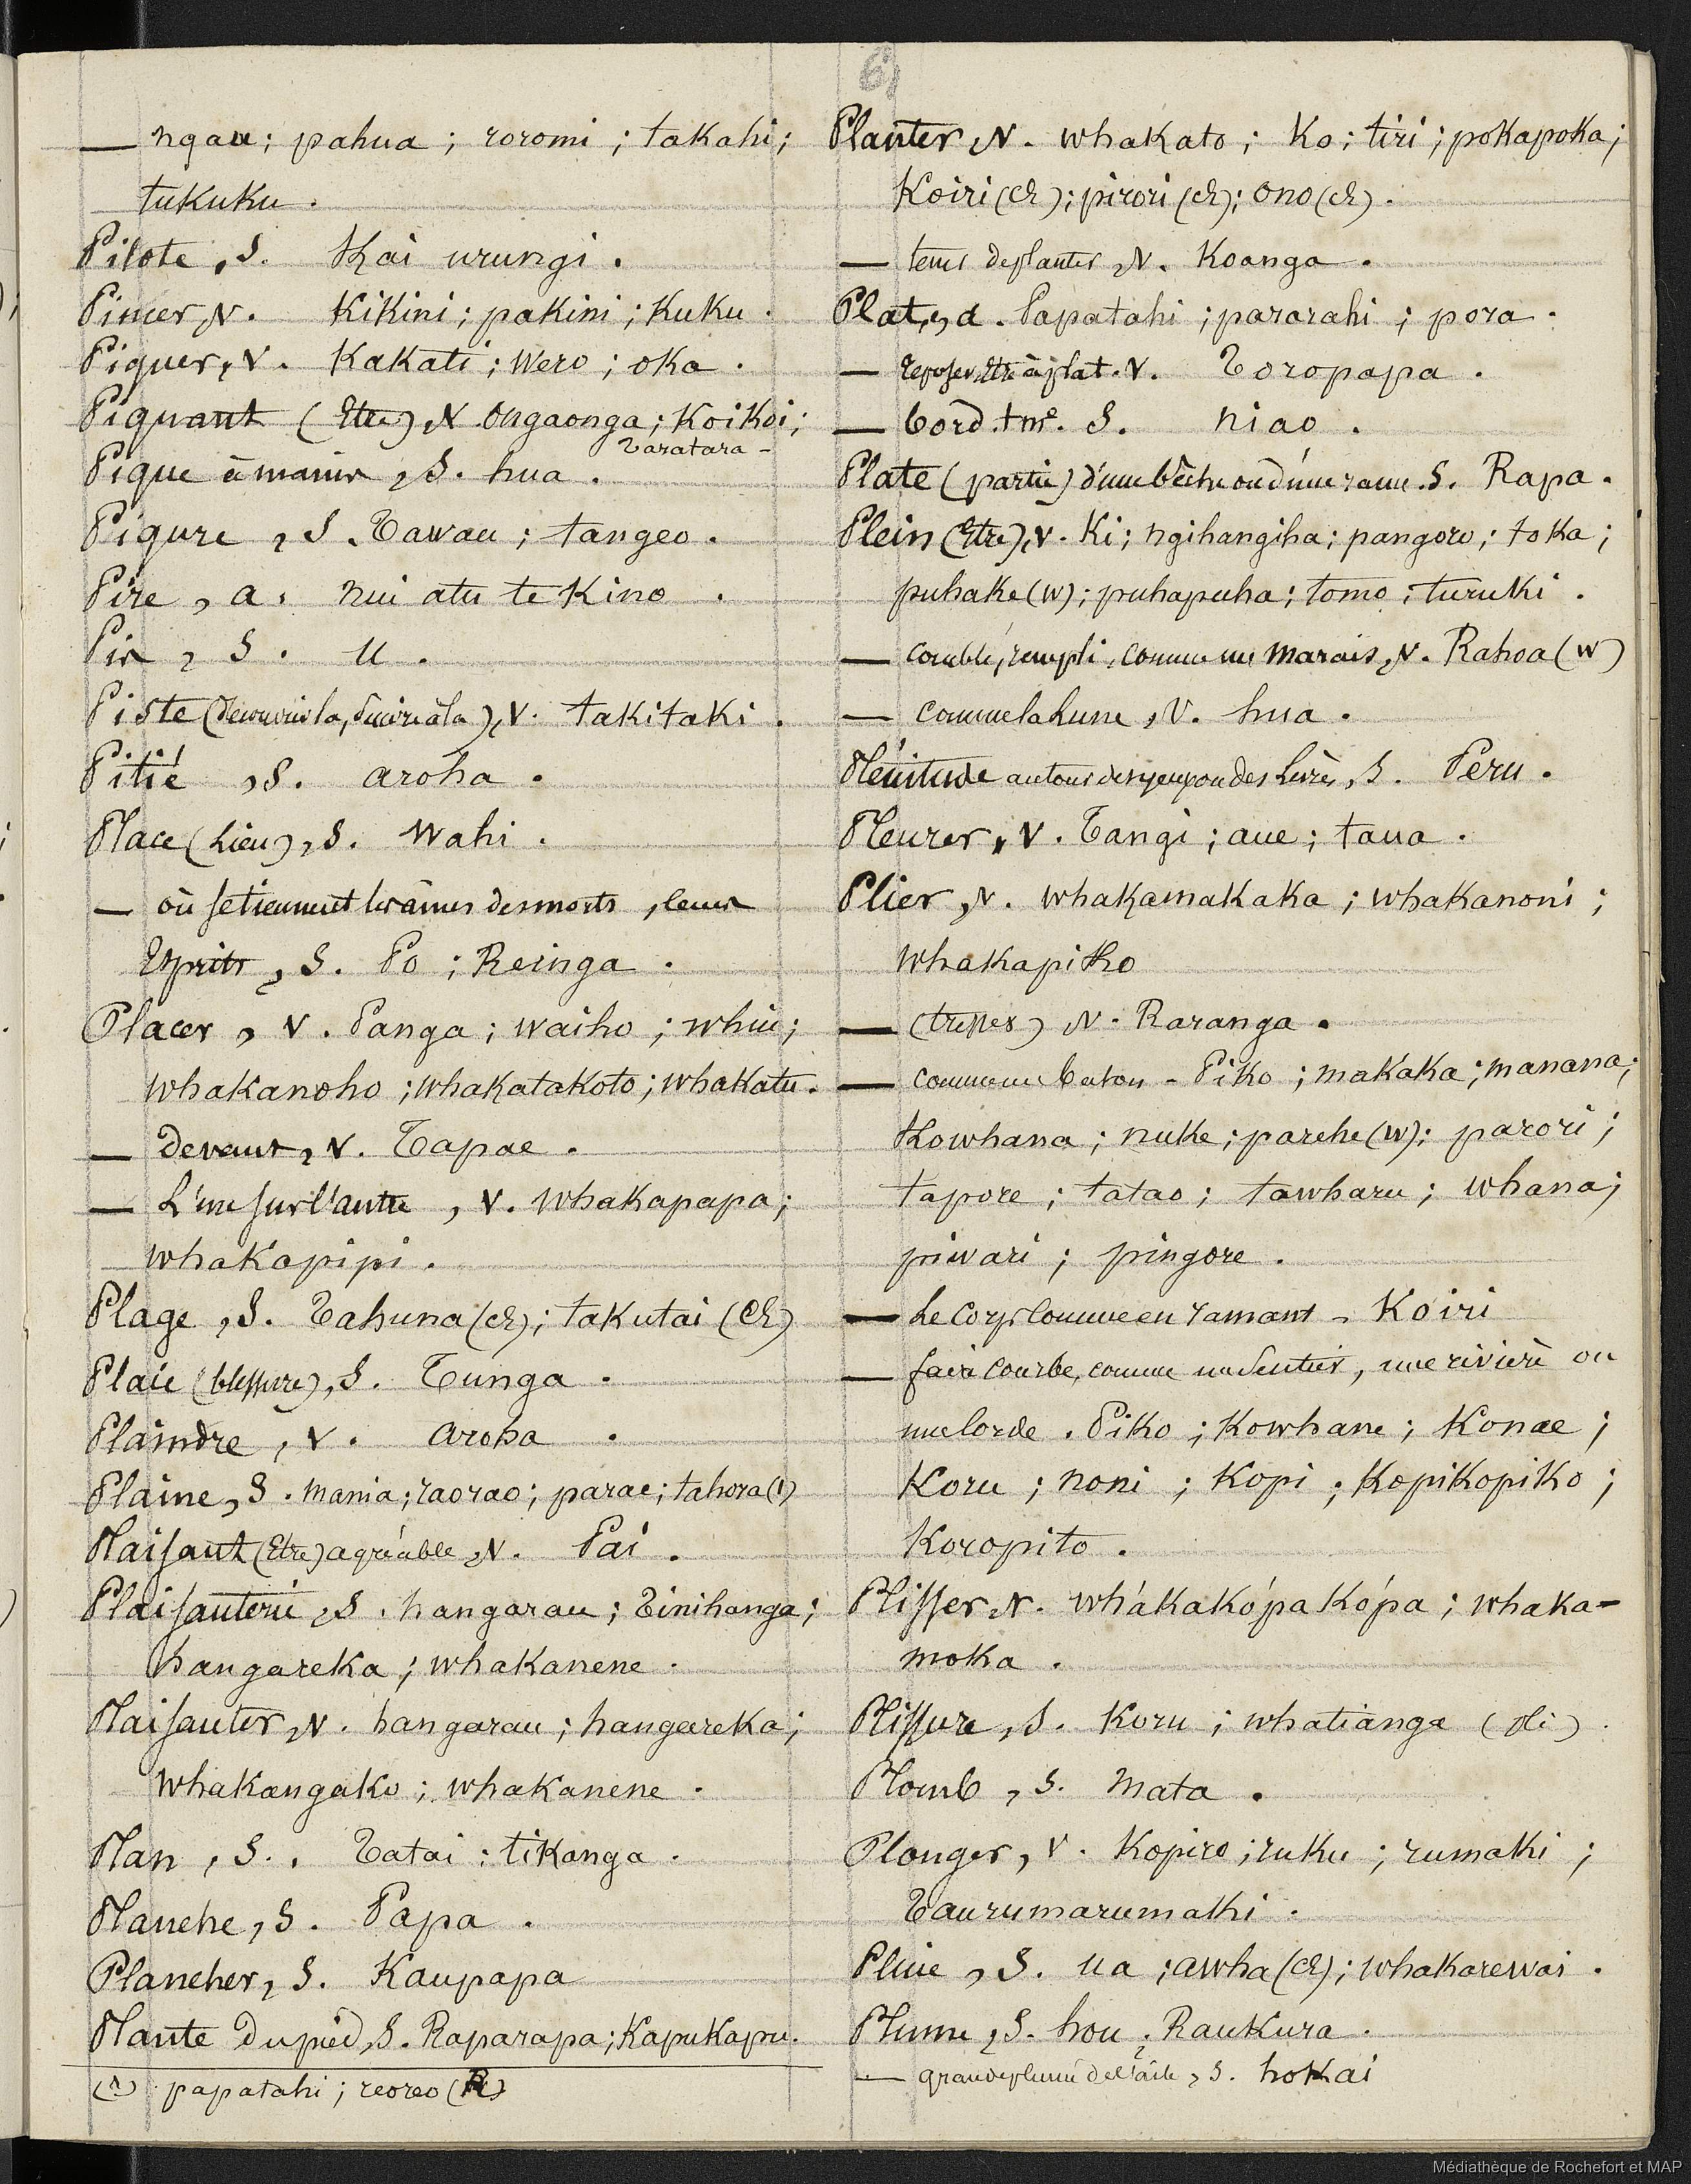 6)
— ngau; pahua; roromi; takahi;
tukuku.
Pilote, S. Kai urungi.
Pincer, V. Kikini; pakini; Kuku.
Piquer, V. Kakati; Wero; oka.
Piquant (Etre) V. Ongaonga; Koikoi;
Taratara -
Pique à manier, S. hua.
Piqure, S. Tawau; tangeo.
Pire, a. nui atu te Kino.
Pis, S. U.
Piste (Découvrir la, suivre à la), V. takitaki.
Pitié, S. aroha.
Place (Lieu), S. Wahi.
— où se tiennent les âmes des morts, leurs
Esprits, S. Po; Reinga.
Placer, V. Panga; waiho; whiu;
whakanoho; whakatakoto; whakatu.
— Devant, V. Tapae.
— L'un sur l'autre, V. Whakapapa;
whakapipi.
Plage, S. Tahuna (cR); takutai (cR)
Plaie (blessure), S. Tunga.
Plaindre, V. aroha.
Plaine, S. mania; raorao; parae; tahora (1)
Plaisant (Etre) agréable, V. Pai.
Plaisanterie, S. hangarau; Tinihanga;
hangareka; whakanene.
Plaisanter, V. hangarau; hangareka;
whakangako; whakanene.
Plan, S. Tatai; tikanga.
Planche, S. Papa.
Plancher, S. Kaupapa
Plante du pied, S. Raparapa; Kapukapu.
(1) papatahi; reoreo (R)
Planter, V. whakato; Ko; tiri; pokapoka;
Koiri (cR); pirori (cR); ono (cR).
— tems de planter, V. Koanga.
Plat, e, a. Papatahi; pararahi; pora.
— reposer, être à plat. V. Toropapa.
— bord. tme. S. niao.
Plate (partie) d'une bêche ou d'une rame. S. Rapa.
Plein (Etre), V. Ki; ngihangiha; pangoro; toka;
puhake (W); puhapuha; tomo; turuki.
— comblé, rempli, comme un marais, V. Rahoa (W)
— comme la Lune, V. hua.
Plénitude autour des yeux ou des Lèvres, S. Peru.
Pleurer, V. Tangi; aue; taua.
Plier, V. whakamakaka; whakanoni;
whakapiko
— (tresser) V. Raranga.
— comme un baton - Piko; makaka; manana;
Kowhana; nuke; parehe (W); parori;
tapore; tatao; tawharu; whana;
piwari; pingore.
— Le corps comme en ramant - Koiri
— faire courbe, comme un sentier, une rivière ou
une corde. Piko; Kowhane; Konae;
Koru; noni; Kopi; Kopikopiko;
Koropito.
Plisser, V. whákakópakópa; whaka-
moka.
Plissure, S. Koru; whatianga (pli).
Plomb, S. Mata.
Plonger, V. Kopiro; ruku; rumaki;
Taurumarumaki.
Pluie, S. Ua; awha (cR); whakarewai.
Plume, S. hou; Raukura.
— grande plume de l'aile, S. hokai
Médiathèque de Rochefort et MAP